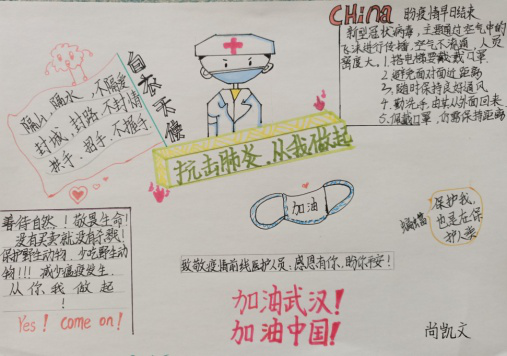 China 盼疫情早日结束
新型冠状病毒，主要通过空气中的
飞沫进行传播，空气不流通，人员
密度大。1.搭电梯要戴口罩
2.避免面对面近距离
3.随时保持良好通风
4.勤洗手，由其从外面回来
5.佩戴口罩，仍需保持距离
白衣天使
隔山，隔水，不隔爱
封城，封路，不封情
拱手，招手，不握手
抗击肺炎，从我做起
加油
善待自然！敬畏生命！
没有买卖就没有杀戮！
保护野生动物，少吃野生动
物!!! 减少瘟疫发生，
从你我做起
！
Yes! come on!
蝙蝠
保护我，
也是在保
护人类
致敬疫情前线医护人员：感恩有你，盼你平安！
加油武汉！
加油中国！
尚凯文